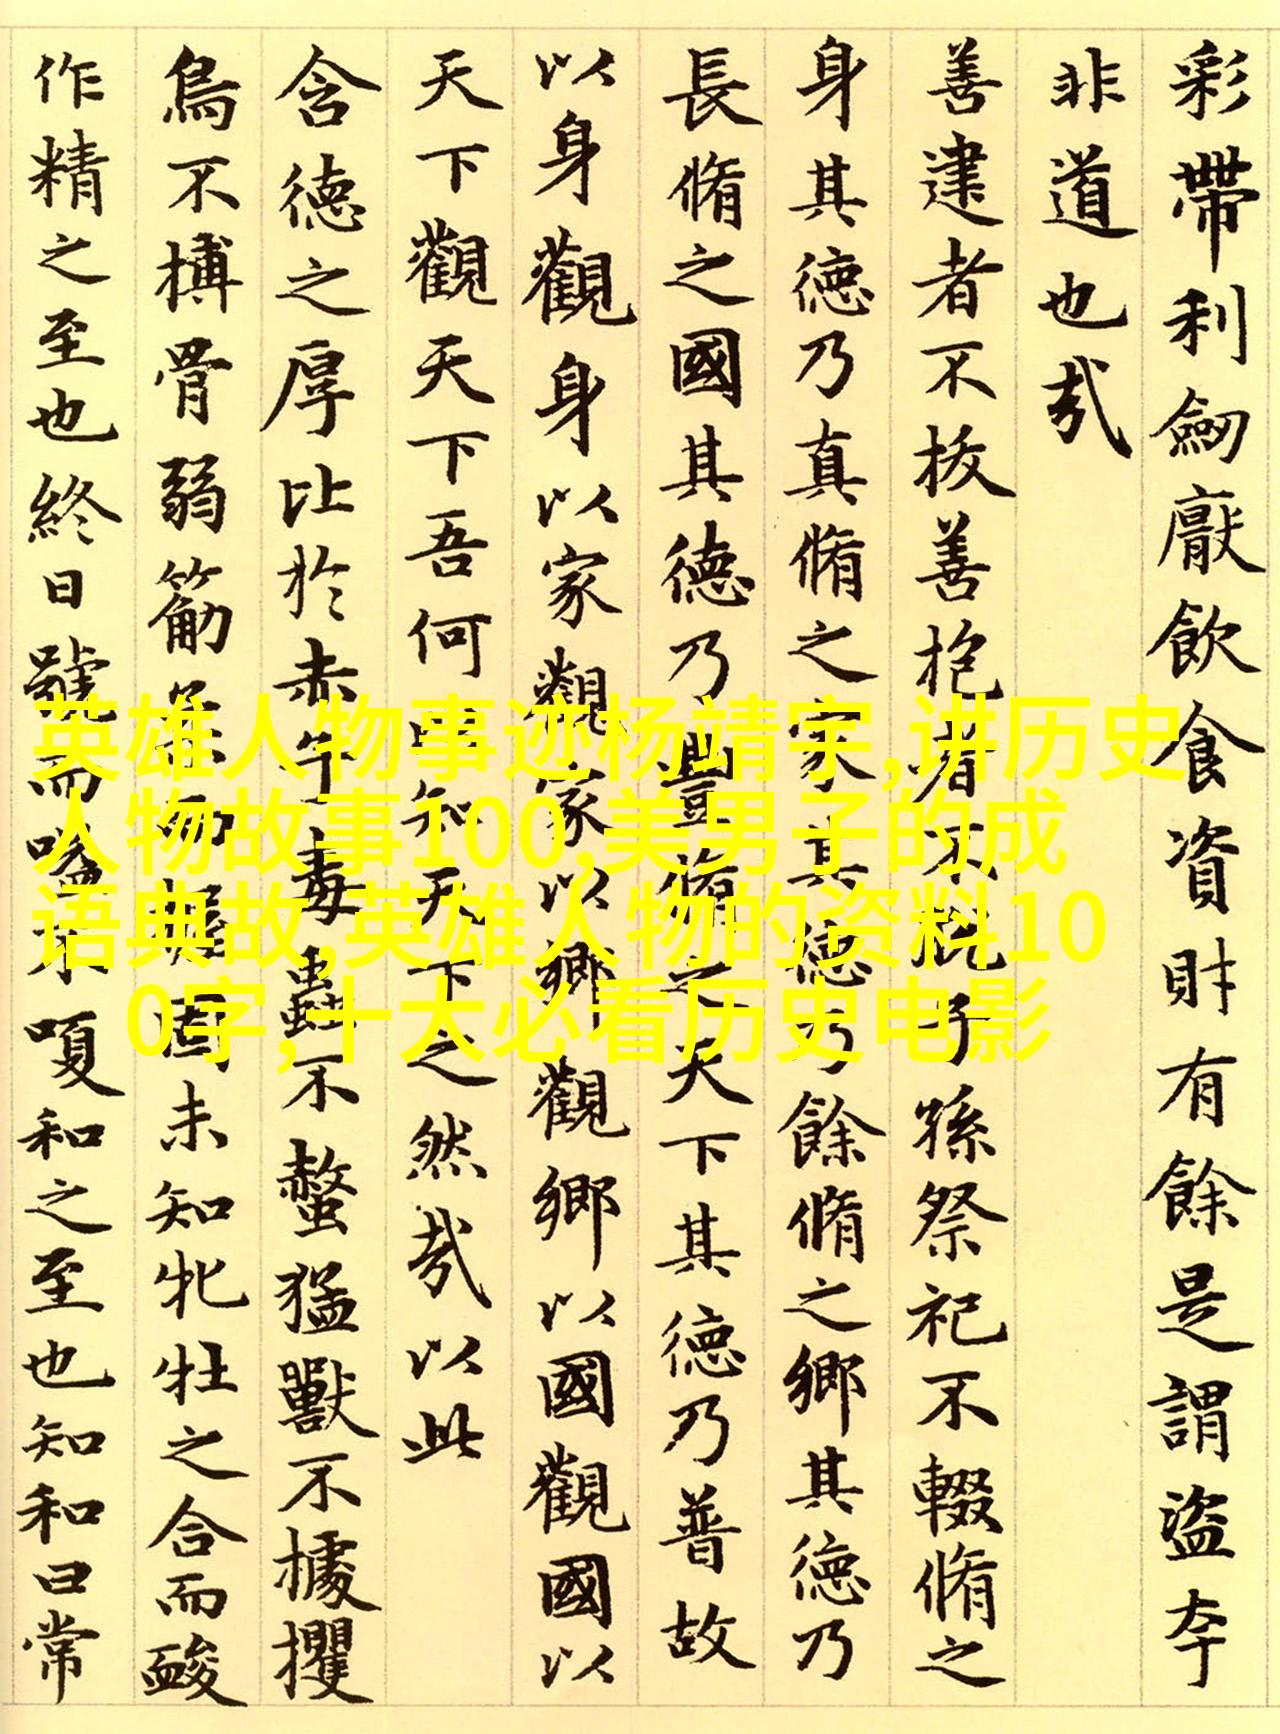 彩帶利劔厭飲食資財有餘是謂盜夸
非道也哉
善建者不拔善抱者不脫子孫祭祀不輟脩之
身其德乃真脩之家其德乃餘脩之鄉其德乃
長脩之國其德乃豐脩之天下其德乃普故
以身觀身以家觀家以鄉觀鄉以國觀國以
天下觀天下吾何以知天下之然哉以此
含德之厚比於赤子毒蟲不螫猛獸不據攫
鳥不搏骨弱筋柔而握固未知牝牡之合而
作精之至也終日號而嗌不嗄和之至也知和曰常
英雄人物事迹杨靖宇,讲历史
人物故事100,美男子的成
语典故,英雄人物的资料10
0字,十大必看历史电影